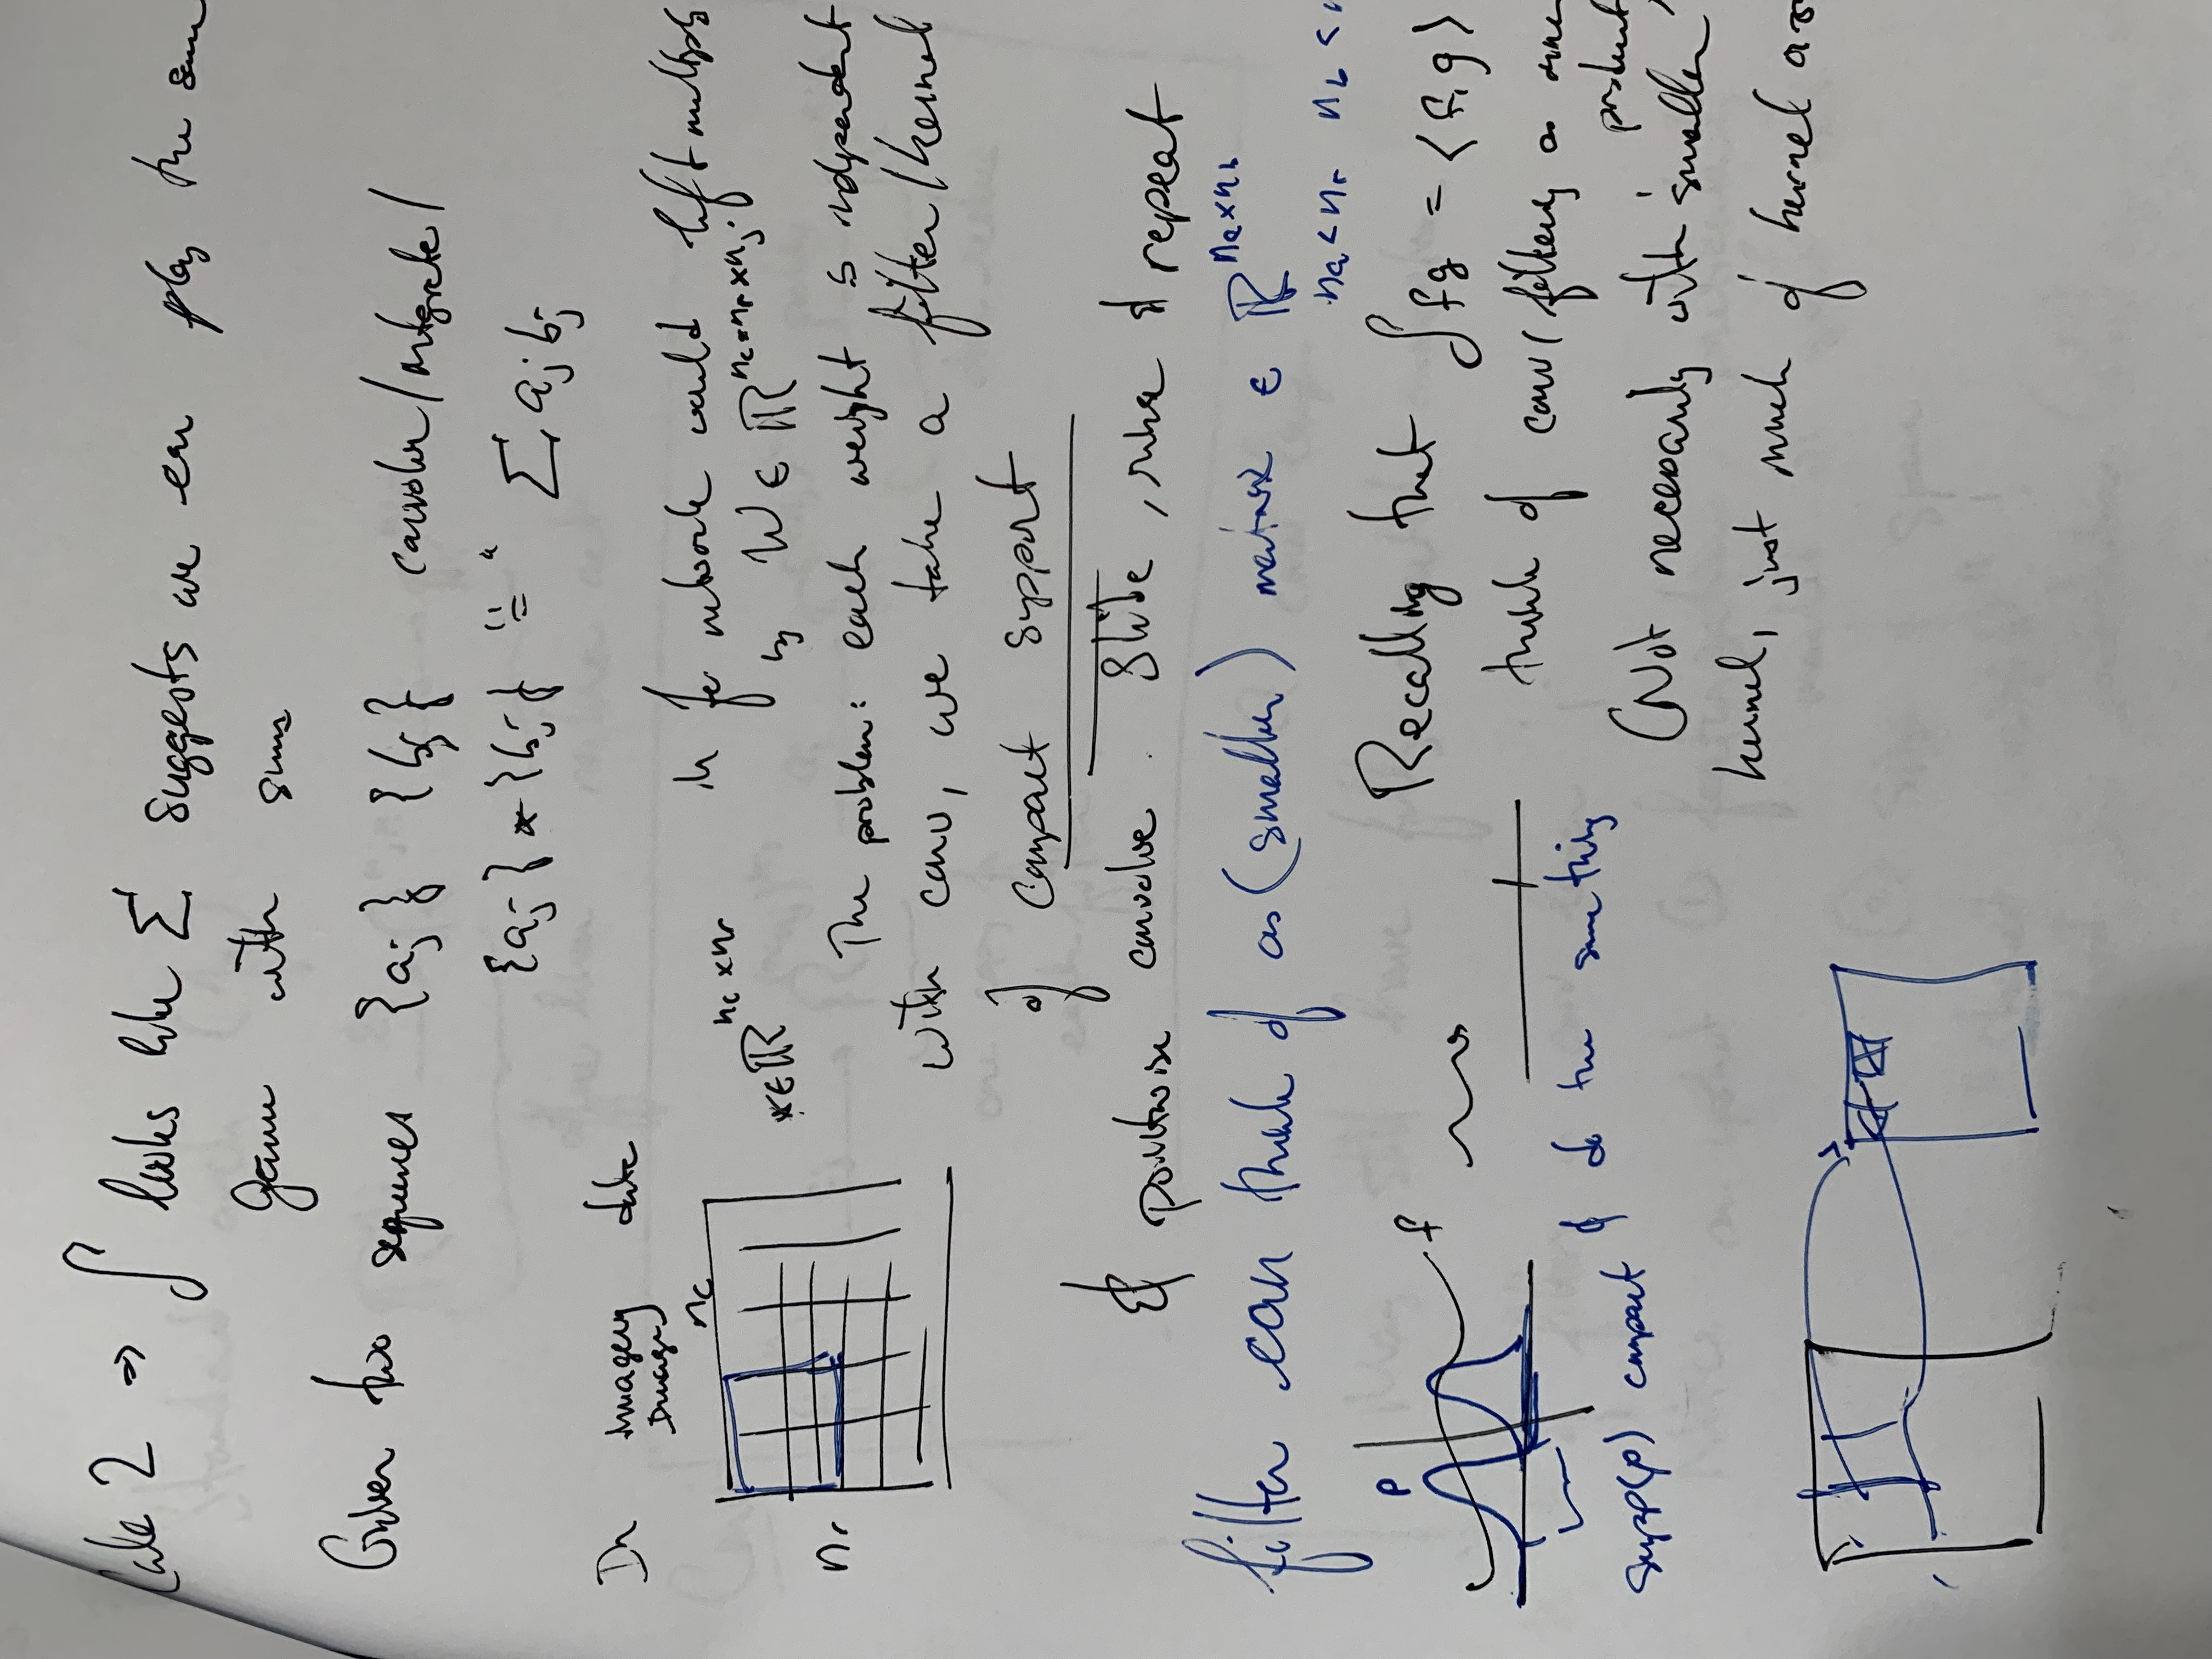 Calc 2 ⇒ ∫ looks like Σ suggests we can play the same
game with sums
Given two sequences {aj} {bj} convolve/integrate/
{aj} * {bj} "=" Σ aj bj
In imagery data
Image
nc
nr
x ∈ ℝ^{nc × nr}
in fc network would left multiply
by W ∈ ℝ^{nc × nr × nj}.
The problem: each weight is independent
with conv, we take a filter/kernel
of compact support
& pointwise convolve. Slide, rinse & repeat
filter can think of as (smaller) matrix ∈ ℝ^{na × nb}
na < nr nb <
ρ
f
supp(ρ) compact & do the same thing
Recalling that ∫fg = ⟨f,g⟩
think of conv/filtering as inner
product
(Not necessarily with 'smaller'
kernel, just much of kernel